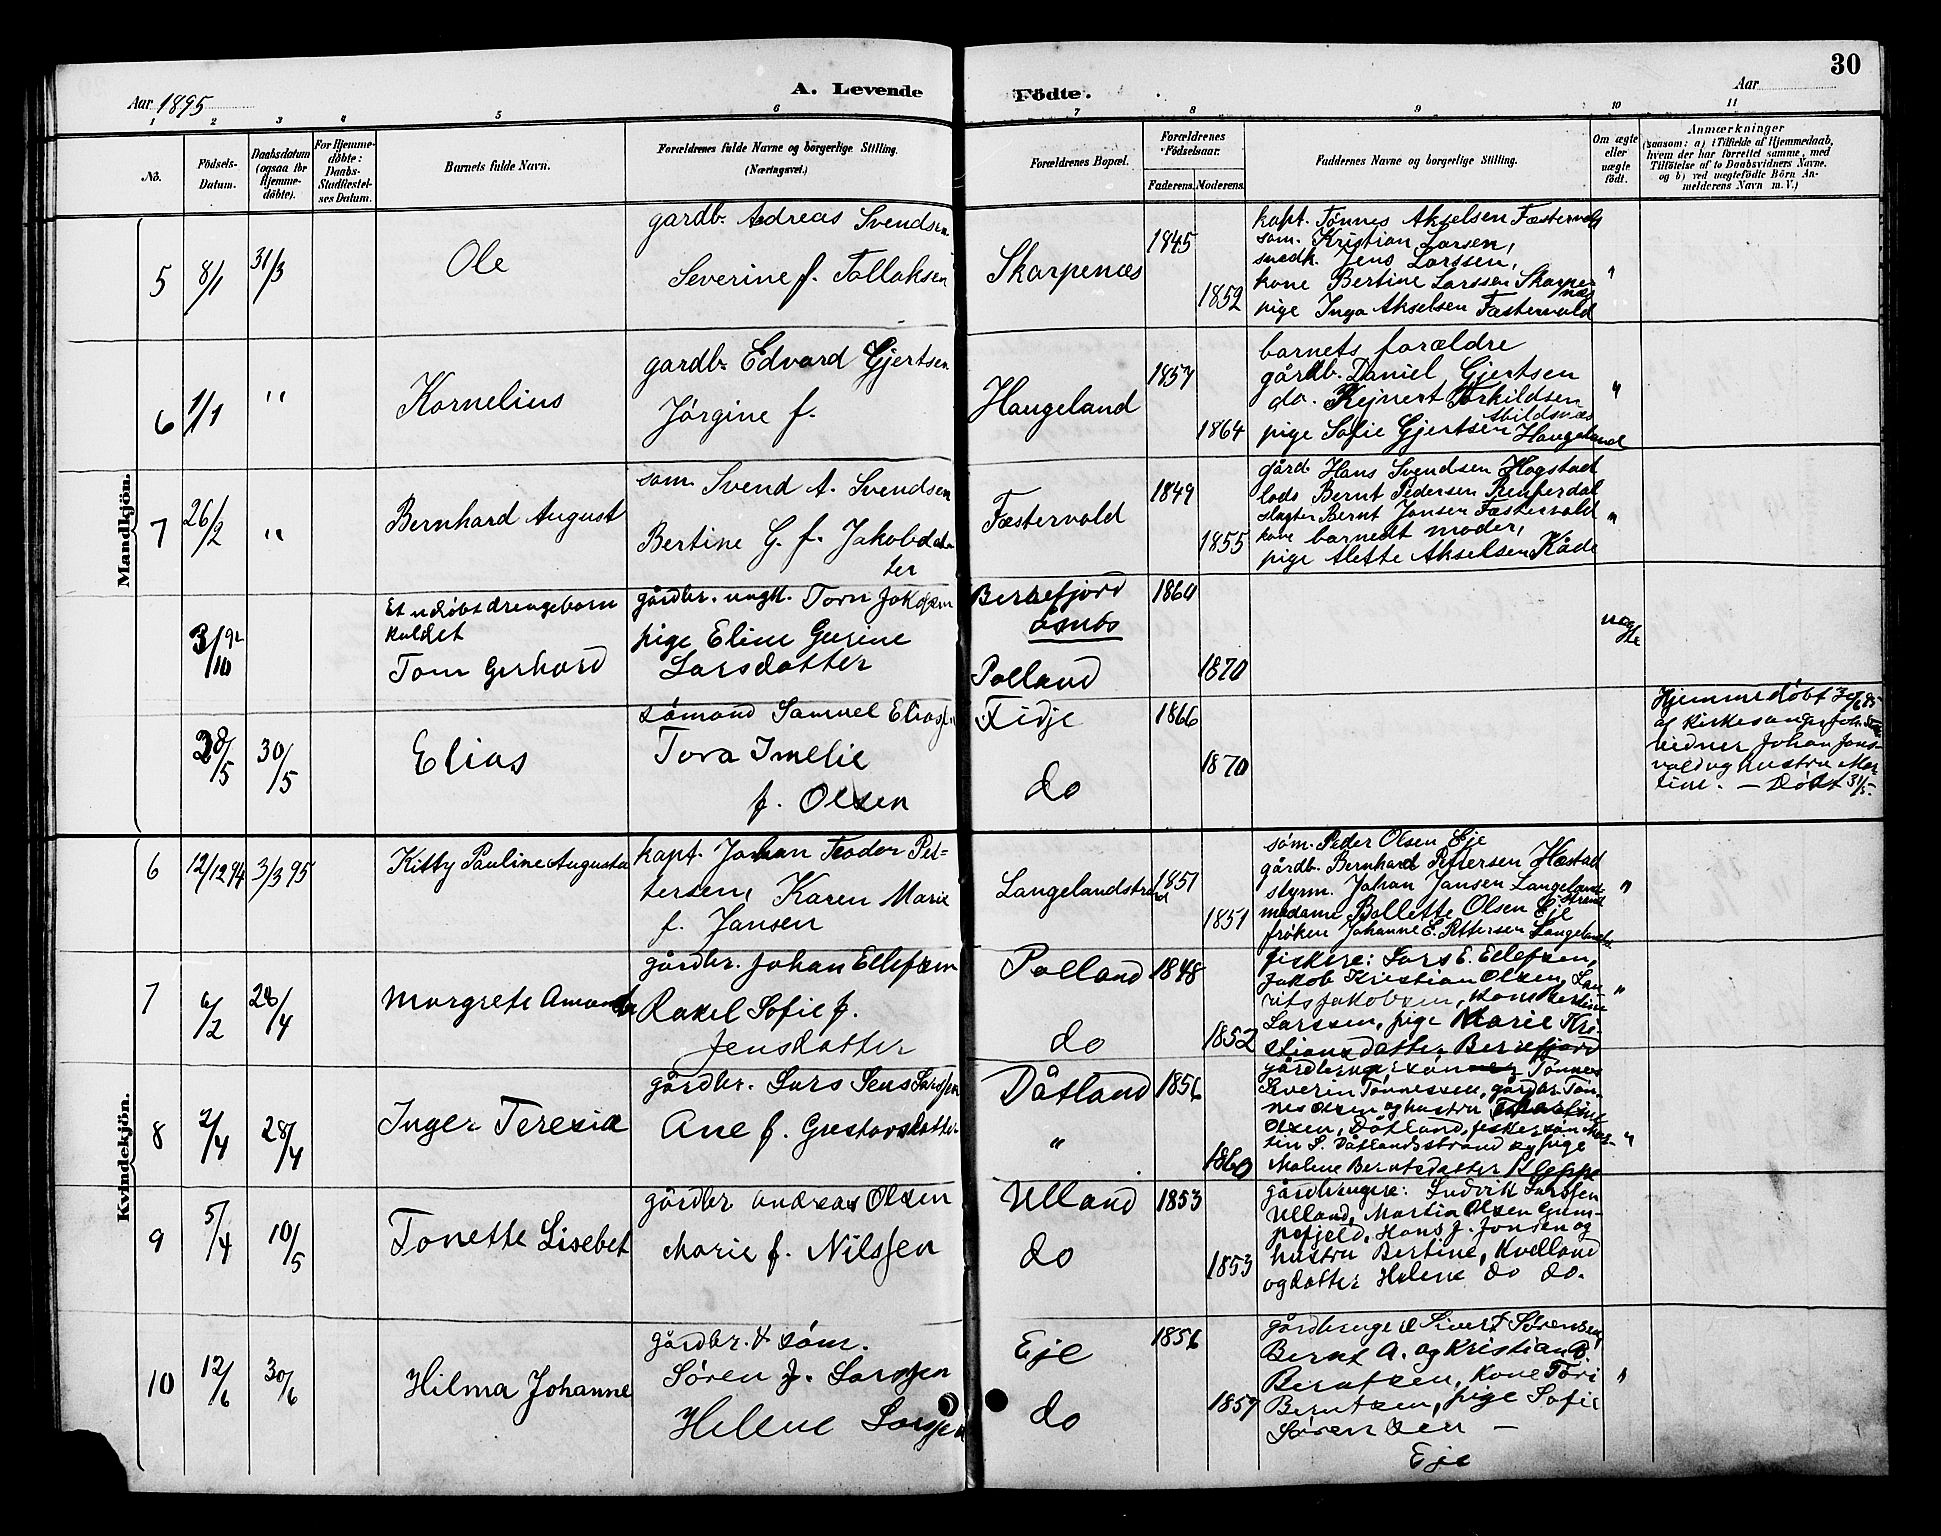 30
Aar 1895
A. Levende
Födte.
Aar
1 2 3 4 5 6 7 8 9 10 11
No.
Födsels-Datum.
Daabsdatum (ogsaa for Hjemme-döbte).
For Hjemme-döbte: Daabs-Stadfæstel-ses Datum.
Barnets fulde Navn.
Forældrenes fulde Navne og borgerlige Stilling.
(Næringsvei.)
Forældrenes Bopæl.
Forældrenes Födselsaar.
Faderens. Moderens.
Faddernes Navne og borgerlige Stilling.
Om ægte eller uægte födt.
Anmærkninger
(saasom: a) i Tilfælde af Hjemmedaab,
hvem der har forrettet samme, med
Tilföielse af to Daabsvidners Navne.
og b) ved uægtefödte Börn An-
melderens Navn m. V.)
Mandkjön.
5 8/1 31/3 Ole
gardb. Andreas Svendsen
Severine f. Tollaksen
Skarpenæs 1845 1852
kapt. Tønnes Akselsen Fæstervold
søm. Kristian Larsen,
snedk. Jens Larssen,
kone Bertine Larssen Skarpe-
næs
pige Inga Akselsen Fæstervold
"
6 1/1 " Kornelius
gardb. Edvard Gjertsen
Jørgine f.
Haugeland 1857 1864
barnets forældre
gårdb. Daniel Gjertsen
do. Rejnert Torkildsen
Abildsnæs
pige Sofie Gjertsen Haugeland
"
7 26/2 " Bernhard August
søm. Svend A. Svendsen
Bertine G. f. Jakobdat-
ter
Fæstervold 1849 1855
gård. Hans Svendsen Hogstad
lods Bernt Pedersen
slagter Bernt Jansen Fæstervold
kone barnedt moder,
pige Alette Akselsen Kåde
"
3/10 92
Et udøbt drengebarn
kaldet
Tom Gerhard
gårdbr. ungk. Torn Jakobsen
pige Eline Gurine
Larsdatter
Berrefjord
Polland 1864 1870
uæg-
te
28/5 30/5 Elias
sømand Samuel Eliassen
Tora Imelie
f. Olsen
Tidje
do 1866 1870
Hjemmedøbt
af kirkesanger
vidner Johan Jans-
vold og hustru Mar-
tine. — Døbt 31/5.
Kvindekjön.
6 12/12 94 3/3 95 Kitty Pauline Augusta
kapt. Johan Teodor Pet-
tersen, Karen Marie
f. Jansen
Langelandstrand 1851 1851
søm. Peder Olsen Eje
gårdb. Bernhard Pettersen Hæstad
styrm. Johan Jansen Langeland-
strand
madame Bollette Olsen Eje
frøken Johanne E. Pettersen Langelands
"
7 6/2 28/4 Margrete Amanda
gårdbr. Johan Ellefsen
Rakel Sofie f.
Jensdatter
Polland
do 1848 1852
fiskere: Lars E. Ellefsen,
Jakob Kristian Olsen, Lau-
rits Jakobsen, kone Bertine
Larssen, pige Marie Kri-
stiansdatter Berrefjord
"
8 2/4 28/4 Inger Teresia
gårdbr. Lars Jens Larssen
Ane f. Gustavsdatter
Dåtland
" 1856 1860
gårdbruger, søn Tønnes
Severin Tønnessen, gårdbr. Tøn-
nes Olsen og hustru
Olsen, Dåtland, fisker søn Mar-
tin S. Dåtlandsstrand og pige
Malene Berntsdatter Kleppe
"
9 5/4 10/5 Tonette Lisebet
gårdbr Andreas Olsen
Marie f. Nilssen
Ulland
do 1853 1853
gårdbrugere: Ludvik Larssen
Ulland, Martin Olsen Gum-
pefjeld, Hans J. Jonsen og
hustru Bertine, Kvelland
og datter Helene do do.
10 12/6 30/6 Hilma Johanne
gårdbr. & søm.
Søren J. Larssen
Helene Larssen
Eje
do 1856 1857
gårdbrugere Sivert Sørensen,
Bernt A. og Kristian B.
Berntsen, kone Tori
Berntsen, pige Sofie
Sørensen —
Eje
"